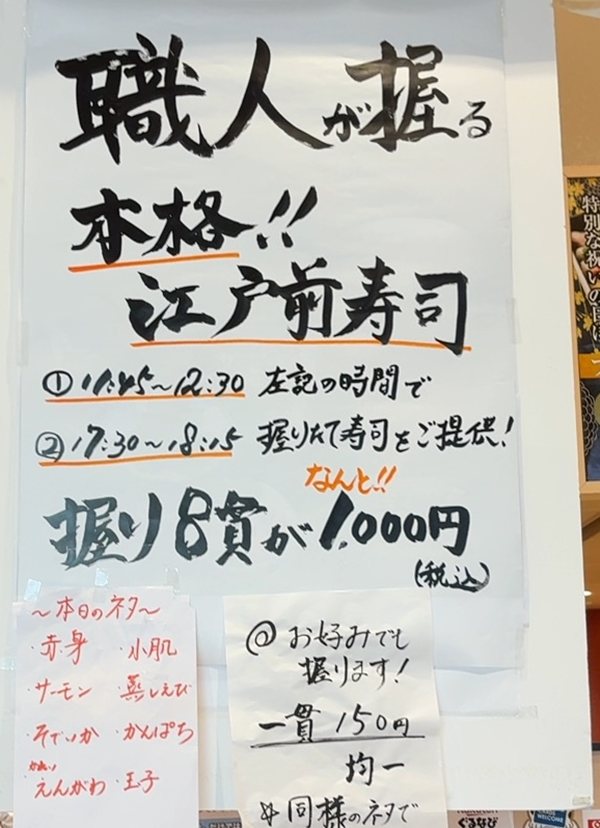 職人が握る
本格!!
江戸前寿司
① 11:45〜12:30 左記の時間で
② 17:30〜18:15 握りたて寿司をご提供!
なんと!!
握り8貫が1,000円
(税込)
〜本日のネタ〜
・赤身 ・小肌
・サーモン ・蒸しえび
・そでいか ・かんぱち
・えんがわ ・玉子
@ お好みでも
握ります!
一貫 150円
均一
同様のネタで
特別な祝いの日は
ぐるなび
WELCOME